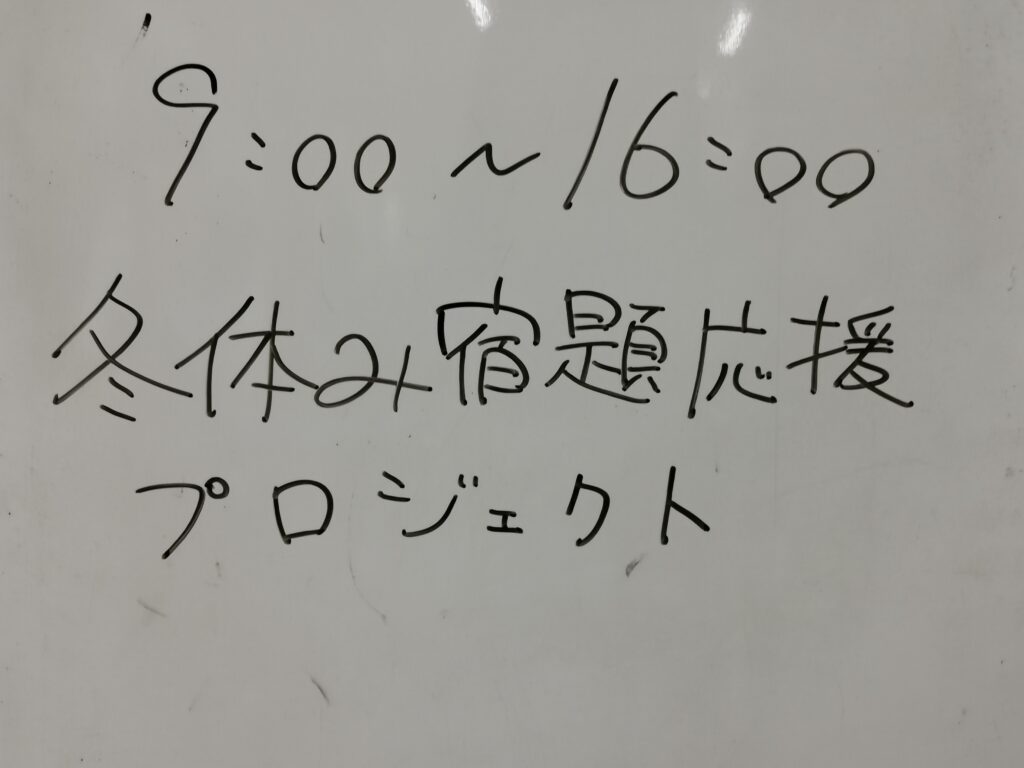 9:00～16:00
冬休み宿題応援
プロジェクト